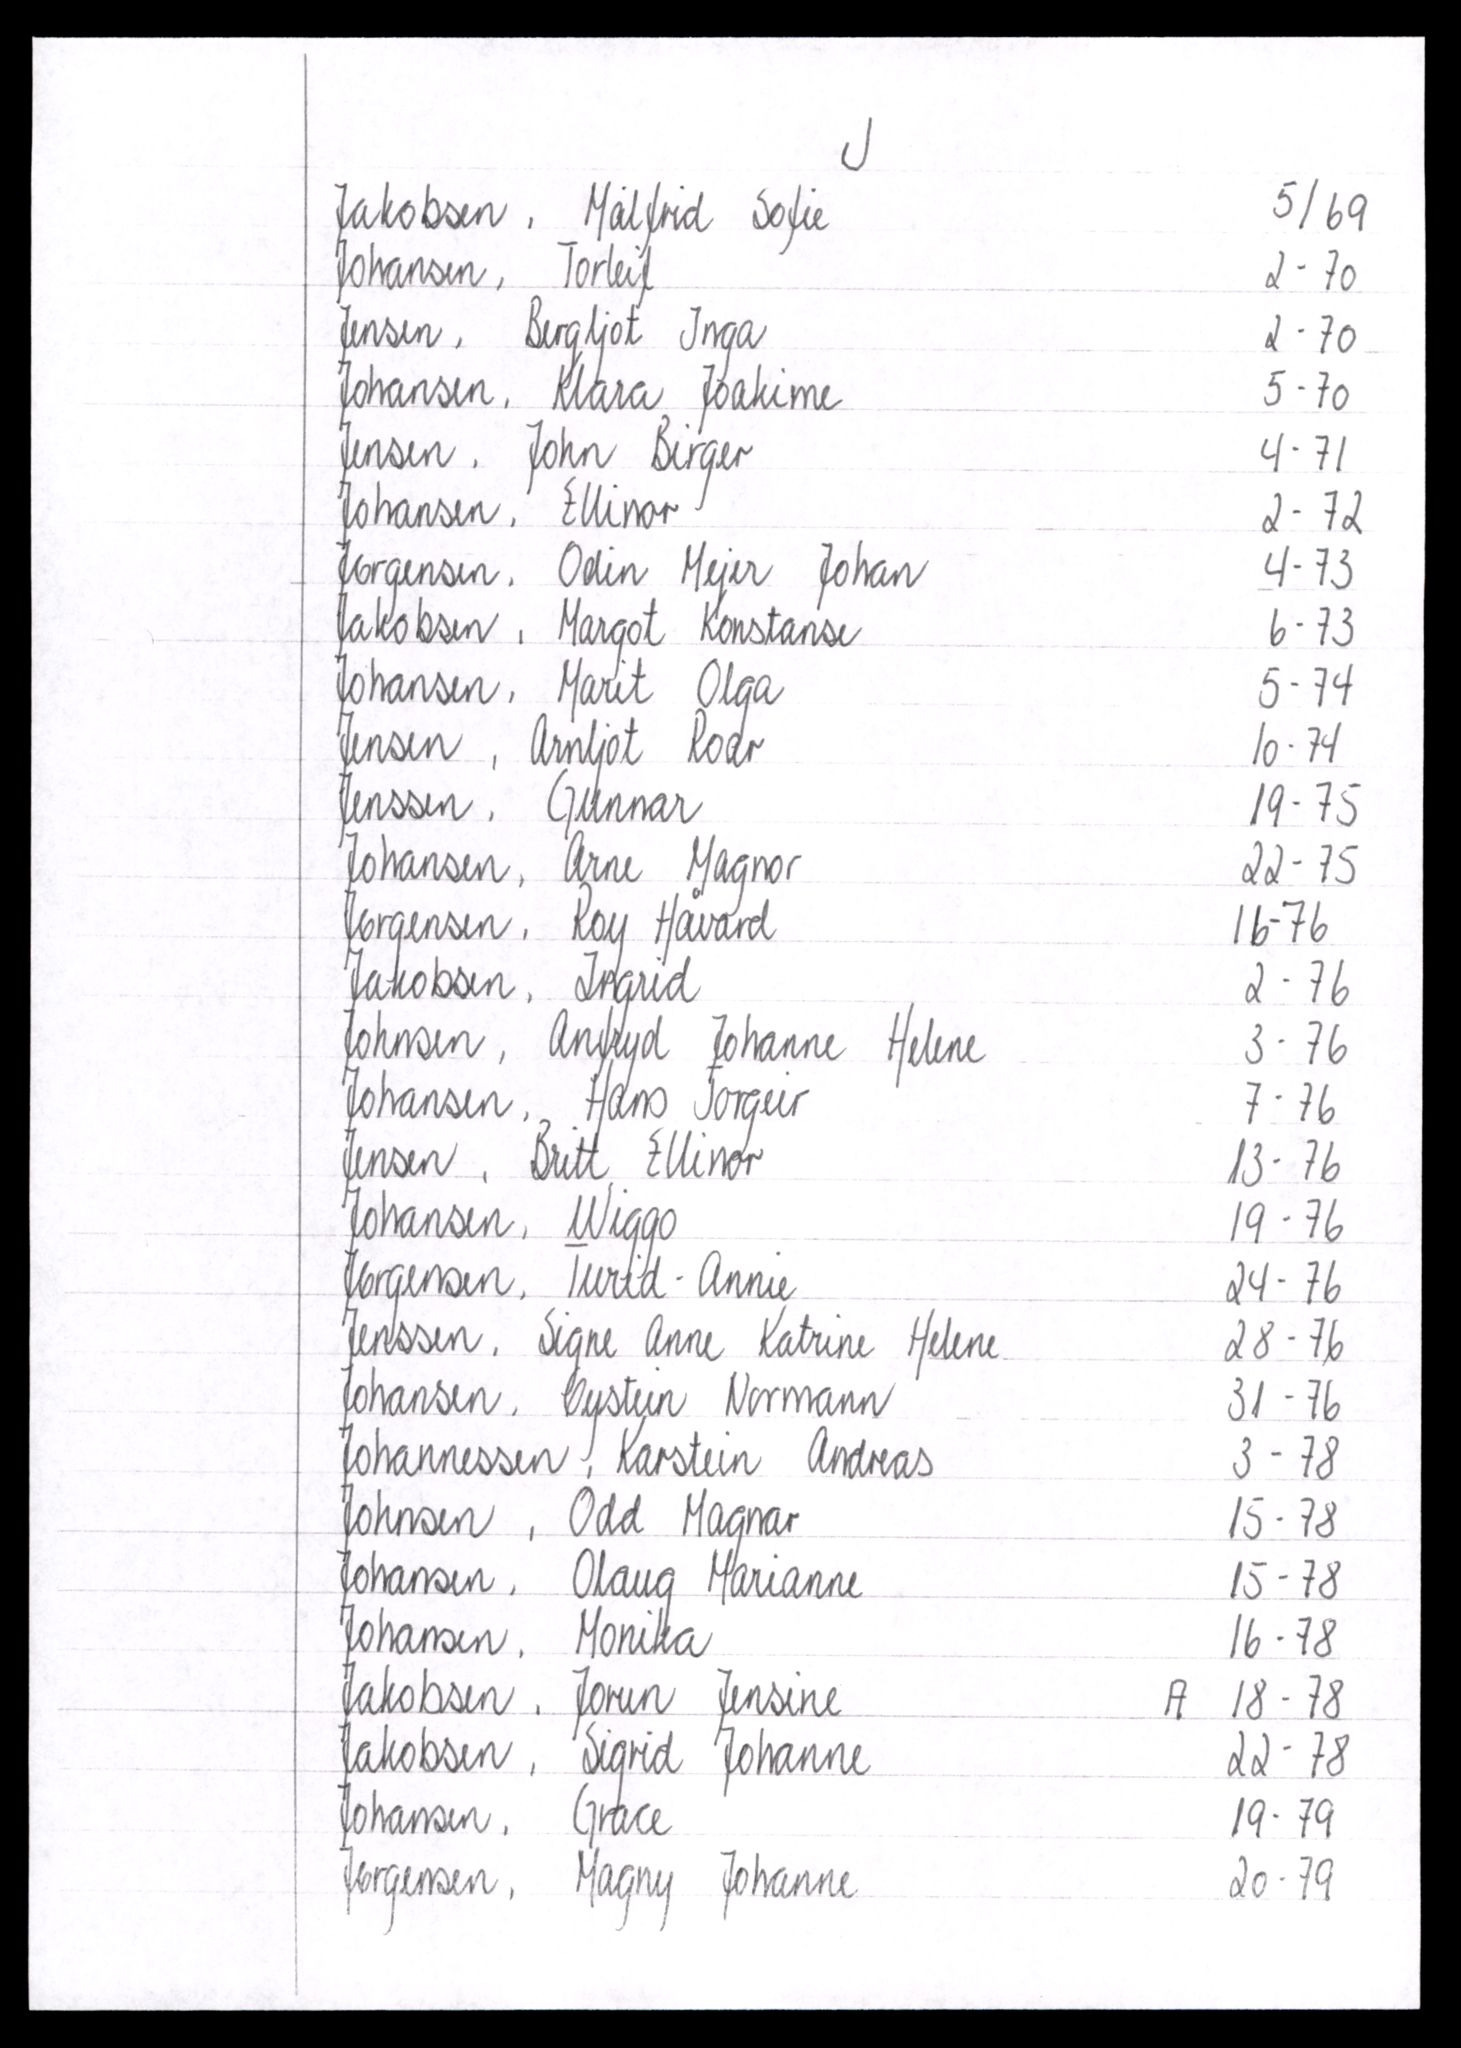 J
Jakobsen, Målfrid Sofie 5/69
Johansen, Torleif 2-70
Jensen, Bergljot Inga 2-70
Johansen, Klara Joakime 5-70
Jensen, John Birger 4-71
Johansen, Ellinor 2-72
Jørgensen, Odin Mejer Johan 4-73
Jakobsen, Margot Konstanse 6-73
Johansen, Marit Olga 5-74
Jensen, Arnljot Roar 10-74
Jenssen, Gunnar 19-75
Johansen, Arne Magnor 22-75
Jørgensen, Roy Håvard 16-76
Jakobsen, Ingrid 2-76
Johnsen, Anfryd Johanne Helene 3-76
Johansen, Hans Torgeir 7-76
Jensen, Britt Ellinor 13-76
Johansen, Wiggo 19-76
Jørgensen, Turid-Annie 24-76
Jenssen, Signe Anne Katrine Helene 28-76
Johansen, Øystein Normann 31-76
Johannessen, Karstein Andreas 3-78
Johnsen, Odd Magnar 15-78
Johansen, Olaug Marianne 15-78
Johansen, Monika 16-78
Jakobsen, Jorun Jensine A 18-78
Jakobsen, Sigrid Johanne 22-78
Johansen, Grace 19-79
Jørgensen, Magny Johanne 20-79